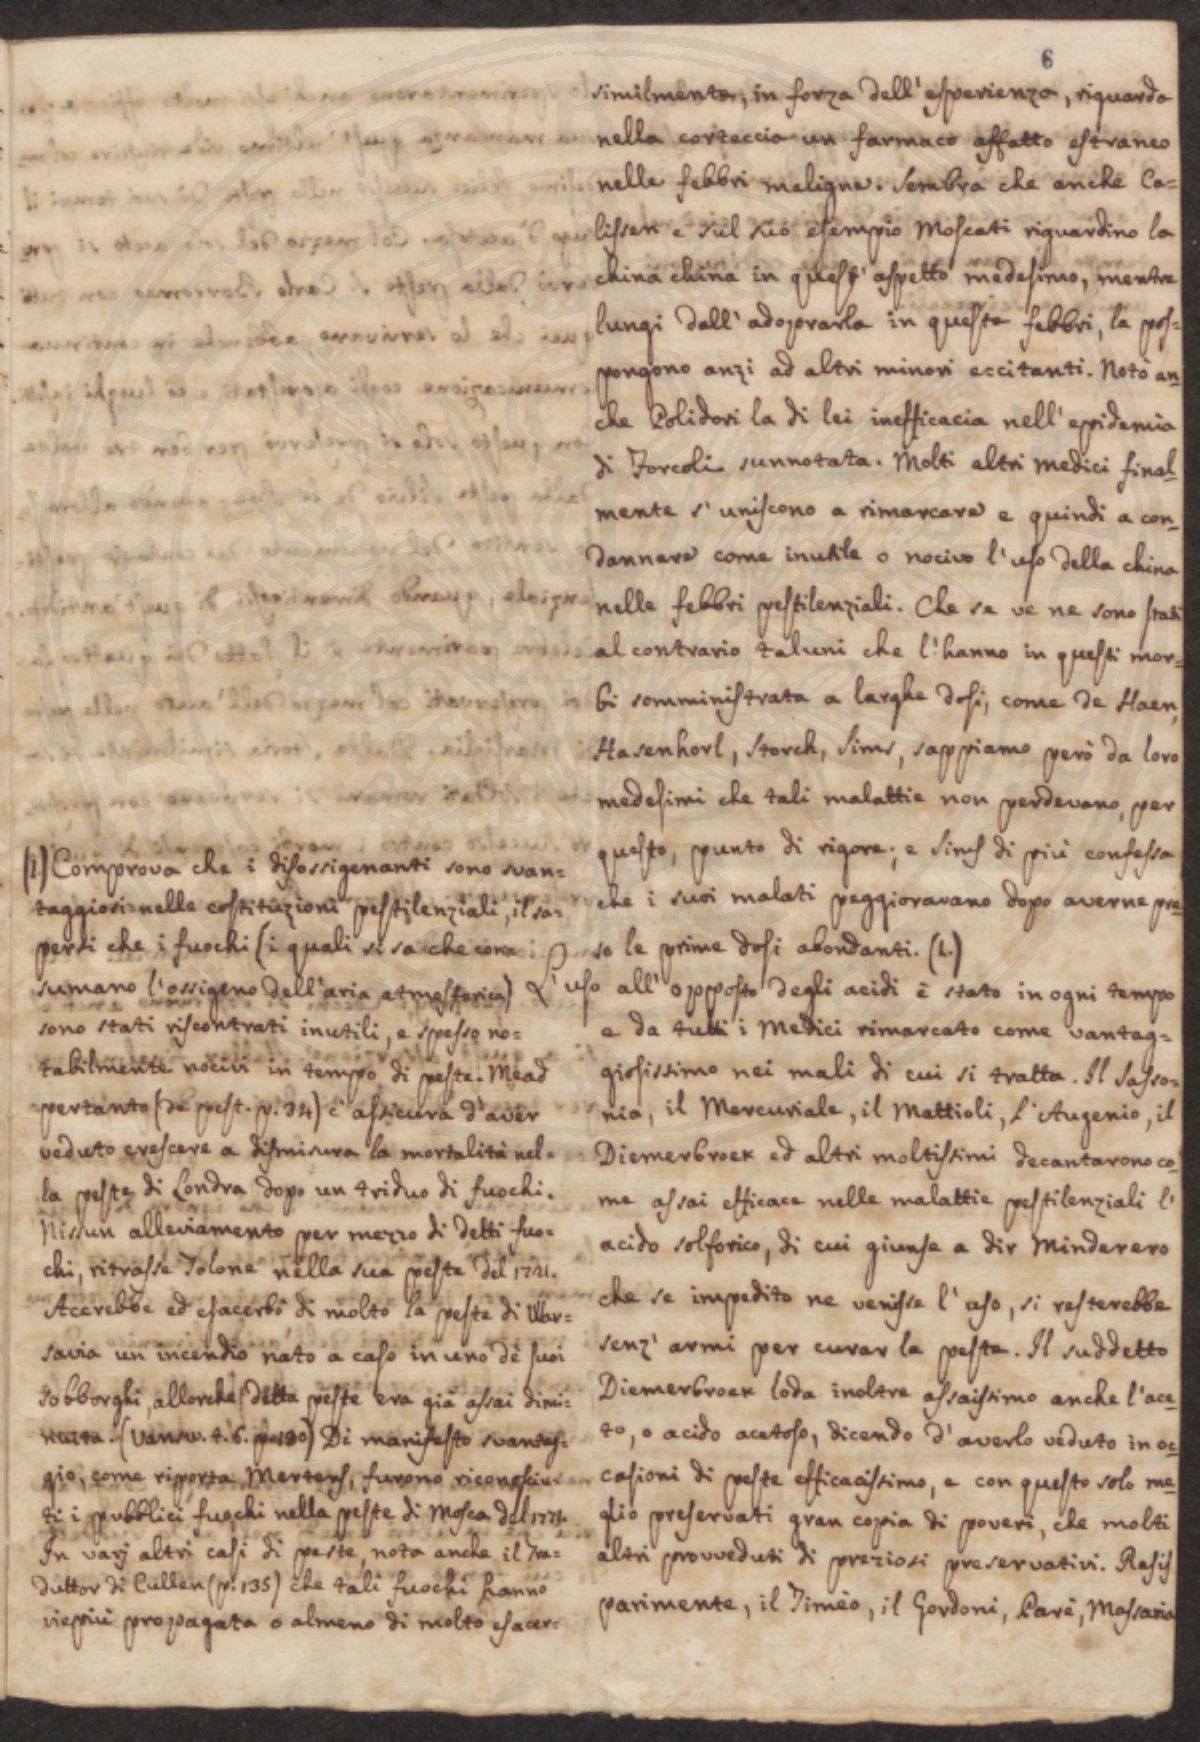 6
similmente, in forza dell' esperienza, riguarda
nella corteccia un farmaco affatto estraneo
nelle febbri maligne. Sembra che anche Ca-
lissen e sul suo esempio Moscati riguardino la
china china in quest' aspetto medesimo, mentre
lungi dall' adoprarla in queste febbri, la pos-
pongono anzi ad altri minori eccitanti. Notò an-
che Polidori la di lei inefficacia nell' epidemia
di Forcoli sunnotata. Molti altri medici final-
mente s' uniscono a rimarcare e quindi a con-
dannare come inutile o nocivo l' uso della china
nelle febbri pestilenziali. Che se ve ne sono stati
al contrario taluni che l' hanno in questi mor-
bi somministrata a larghe dosi, come de Haen,
Hasenhorl, Storck, Sims, sappiamo però da loro
medesimi che tali malattie non perdevano, per
questo, punto di rigore; e Sims di più confessa
che i suoi malati peggioravano dopo averne pre-
so le prime dosi abondanti. (1.)
L' uso all' opposto degli acidi è stato in ogni tempo
e da tutti i Medici rimarcato come vantag-
giosissimo nei mali di cui si tratta. Il Sasso-
nia, il Mercuriale, il Mattioli, l' Augenio, il
Diemerbroek ed altri moltissimi decantarono co-
me assai efficace nelle malattie pestilenziali l'
acido solforico, di cui giunse a dir Minderero
che se impedito ne venisse l' uso, si resterebbe
senz' armi per curar la peste. Il suddetto
Diemerbroek loda inoltre assaissimo anche l' ace-
to, o acido acetoso, dicendo d' averlo veduto in oc-
casioni di peste efficacissimo, e con questo solo me-
glio preservati gran copia di poveri, che molti
altri provveduti di preziosi preservativi. Rasis
parimente, il Timèo, il Gordoni, Parè, Massaria
(1.) Comprova che i disossigenanti sono svan-
taggiosi nelle costituzioni pestilenziali, il sa-
persi che i fuochi (i quali si sa che con-
sumano l' ossigeno dell' aria atmosferica)
sono stati riscontrati inutili, e spesso no-
tabilmente nocivi in tempo di peste. Mead
pertanto (de pest. p. 34) c' assicura d' aver
veduto crescere a dismisura la mortalità nel-
la peste di Londra dopo un triduo di fuochi.
Nissun alleviamento per mezzo di detti fuo-
chi, ritrasse Tolone nella sua peste del 1721.
Accrebbe ed esacerbò di molto la peste di War-
savia un incendio nato a caso in uno de' suoi
sobborghi, allorchè detta peste era già assai dimi-
nuita. (Vansw. t. 5. ) Di manifesto svantag-
gio, come riporta Mertens, furono riconosciu-
ti i pubblici fuochi nella peste di Mosca del 1771.
In varj altri casi di peste, nota anche il Tra-
duttor di Cullen (p. 135) che tali fuochi hanno
viepiù propagata o almeno di molto esacer-